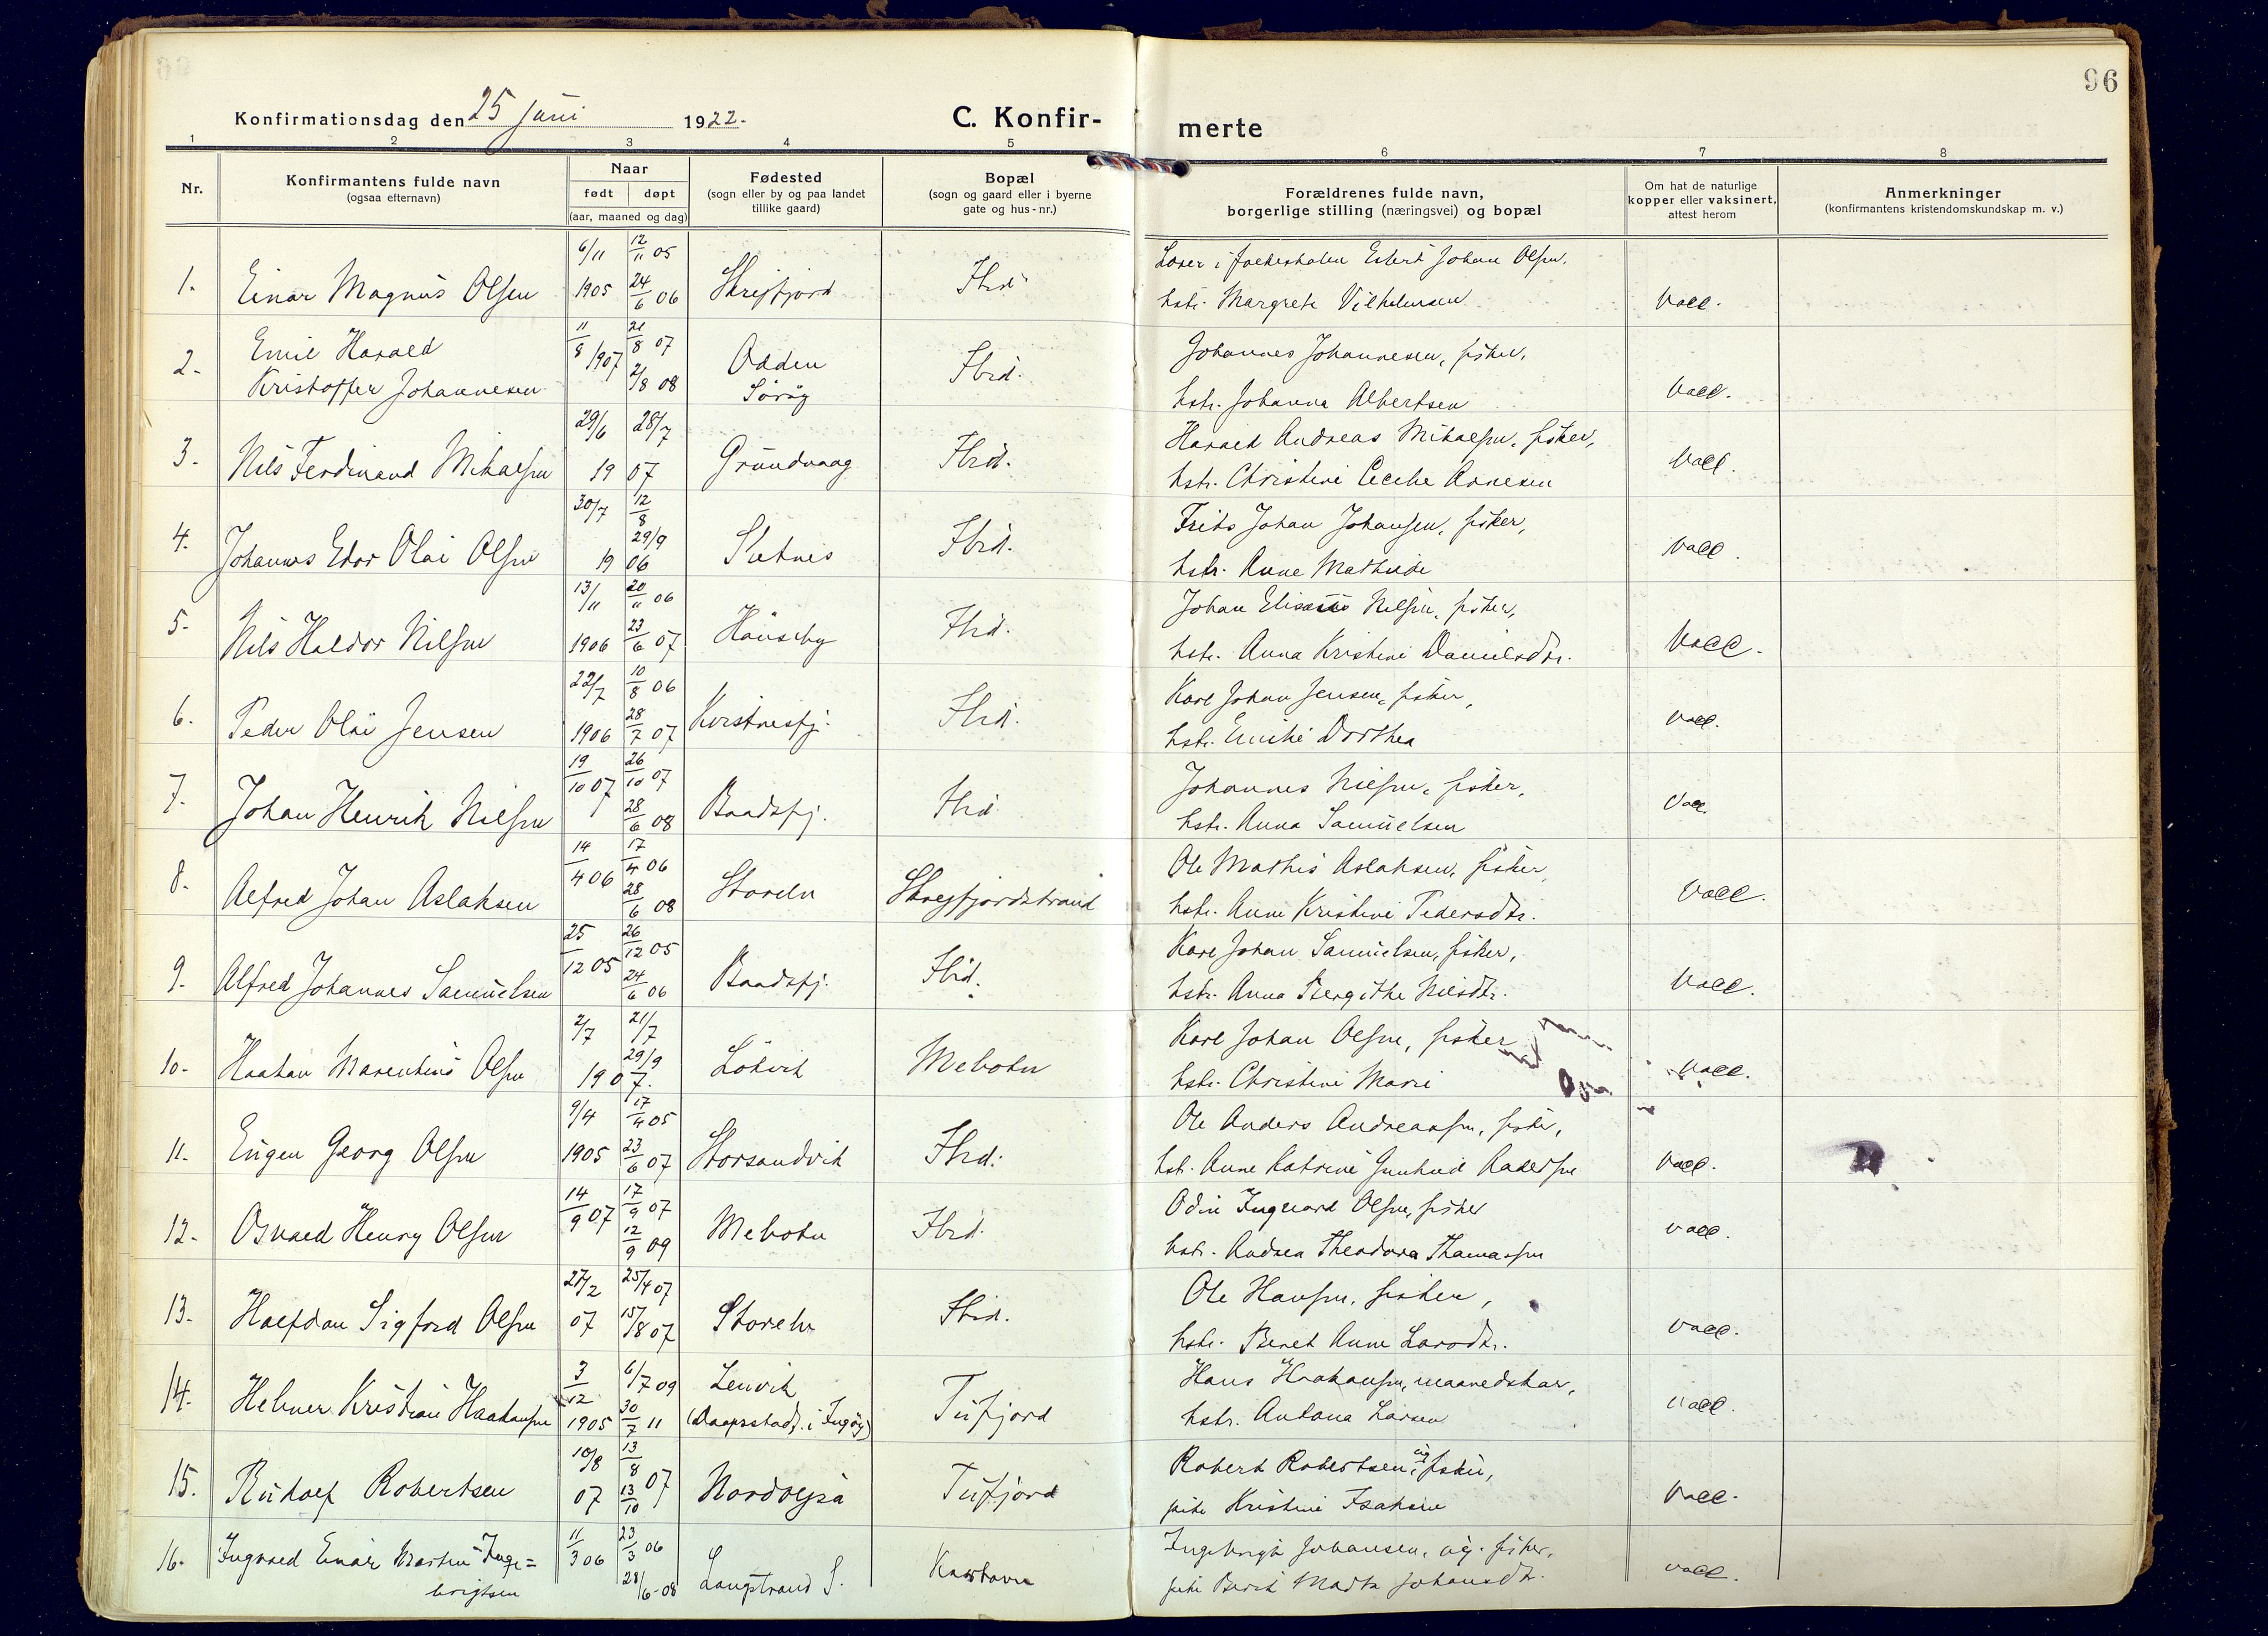 96
Konfirmationsdag den 25 juni 1922.
C. Konfir-
merte
1 2 3 4 5 6 7 8
Nr.
Konfirmantens fulde navn
(ogsaa efternavn)
Naar
født døpt
(aar, maaned og dag)
Fødested
(sogn eller by og paa landet
tillike gaard)
Bopæl
(sogn og gaard eller i byerne
gate og hus-nr.)
Forældrenes fulde navn,
borgerlige stilling (næringsvei) og bopæl
Om hat de naturlige
kopper eller vaksinert,
attest herom
Anmerkninger
(konfirmantens kristendomskundskap m. v.)
6/11 12/11 05
Johan Olsen,
1. Einar Magnus Olsen 1905 24/6 06 Ibid
hstr. Margrete Vilhelmsen vacc.
11/8 1907 21/8 07
2. Emil Harald
Kristoffer Johannesen 2/8 08 Odden
Sørøy Ibid.
Johannes Johannesen, fisker,
hstr. Johanna Albertsen vacc.
29/6 28/7
3. Nils Ferdinand Mikalsen 19 07 Grundvaag Ibid.
Harald Andreas Mikalsen, fisker,
hstr. Christine Cecilie Arnesen vacc.
30/7 12/8
29/9
4. Johannes Edor Olai Olsen 19 06 Sletnes Ibid.
Frits Johan Johansen, fisker,
hstr. Anne Mathilde vacc.
13/11 20/11 06
5. Nils Haldor Nilsen 1906 23/6 07 Ibid.
Johan Elisæus Nilsen, fisker,
hstr. Anna Kristine Danielsdtr. vacc.
22/7 10/8 06
6. Peder Olai Jensen 1906 28/7 07 Ibid.
Karl Johan Jensen, fisker,
hstr. Emilie Dorthea vacc.
19/10 07 26/10 07
7. Johan Henrik Nilsen 28/6 08 Baadsfj. Ibid
Johannes Nilsen, fisker,
hstr. Anna Samuelsen vacc.
14/4 06 17/4 06
8. Alfred Johan Aslaksen 28/6 08 Storelv
Ole Mathis Aslaksen, fisker,
hstr. Anne Kristine Pedersdtr. vacc.
25/12 05 26/12 05
9. Alfred Johannes Samuelsen 24/6 06 Baadsfj. Ibid.
Karl Johan Samuelsen, fisker,
hstr. Anna Bergithe Nilsdtr. vacc.
2/7 21/7
29/9
10. Haakon Marentius Olsen 1907. Lökvik Mebotn
Karl Johan Olsen, fisker
hstr. Christine Marie vacc.
9/4 17/4 05
11. Eugen Georg Olsen 1905 23/6 07 Storsandvik Ibid.
Ole Anders Andreassen, fisker,
hst. Anne Katrine Gunhild vacc.
14/9 07 17/9 07
12. Osvald Henry Olsen 12/9 09 Mebotn Ibid.
Odin Ingvard Olsen, fisker
hstr. Andrea Theodora Thomassen vacc.
27/2 25/4 07
13. Halfdan Sigford Olsen 07 15/8 07 Storelv Ibid.
Ole Hansen, fisker,
hstr. Beret Anne Larsdtr. vacc.
3/12 6/7 09
14. Helmer Kristian Haakonsen 1905 30/7 11 Lenvik
(Daapsstad i Ingøy) Tufjord
Hans Haakonsen, maanedskar,
hstr. Antona Larsen vacc.
10/8 13/8 07
15. Rudolf Robertsen 07 13/10 Tufjord
Robert Robertsen, ug. fisker,
pike Kristine Isaksen vacc.
11/3 06 23/3 06
16. Ingvald Einar Martin Inge=
brigtsen 28/6 08 Langstrand S.
Ingebrigt Johansen, ug. fisker,
pike Berit Marta Johansdtr. vacc.